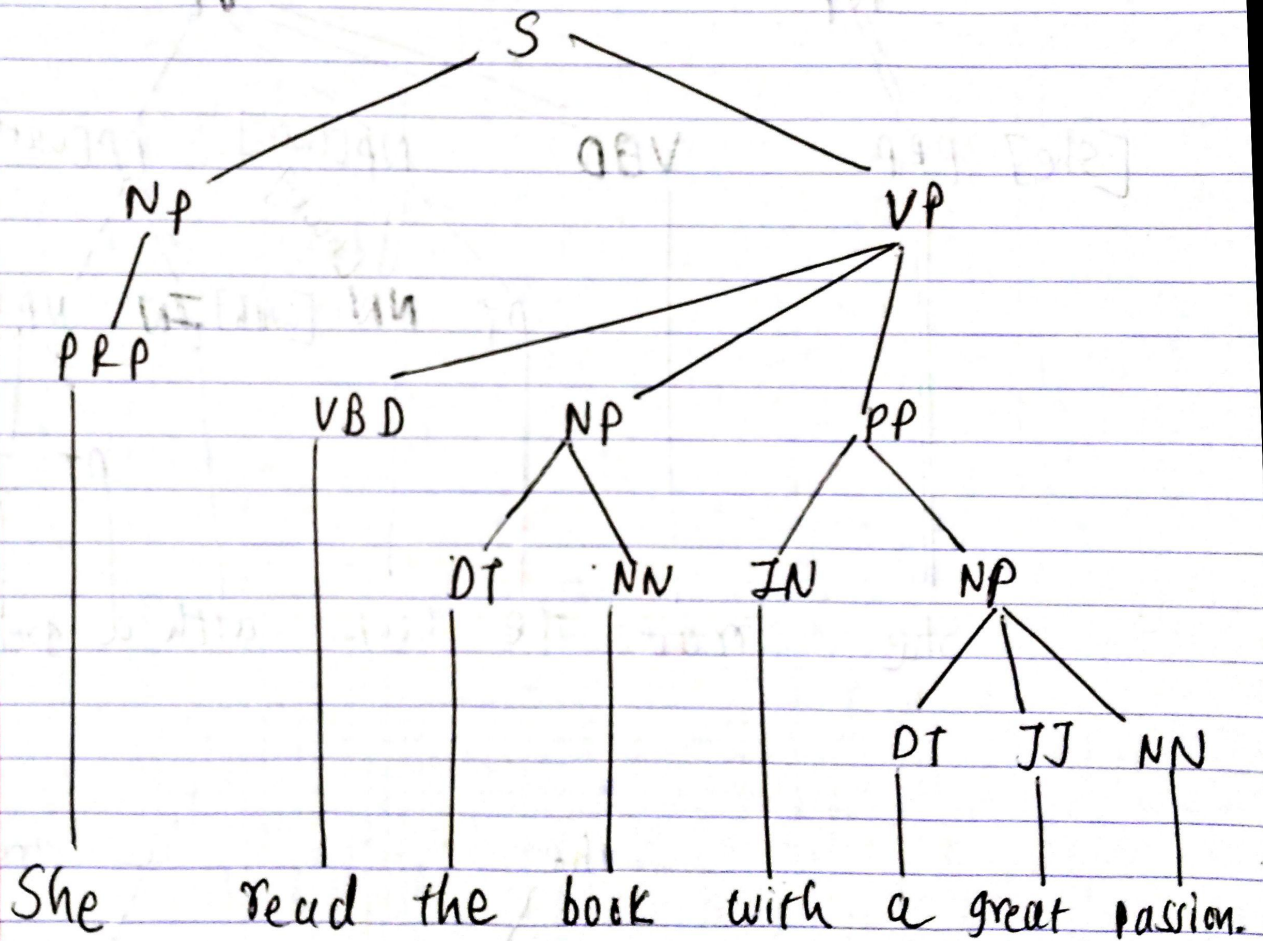 S
NP VP
PRP
VBD NP PP
DT NN IN NP
DT JJ NN
She read the book with a great passion.